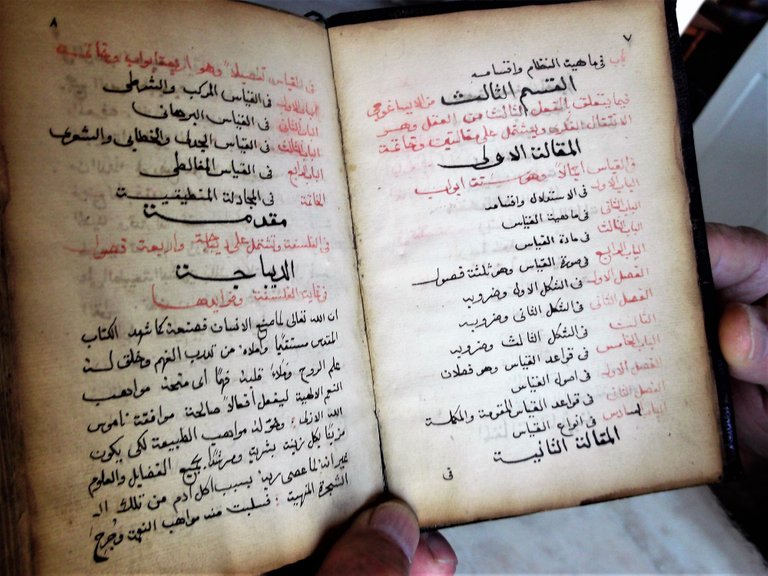 ٧
باب في ماهية النظام واقسامه
القسم الثالث من الايساغوجي
فيما يتعلق بالفعل الثالث من العقل وهو
الانتقال الفكري ويشتمل على مقالتين وخاتمة
المقالة الاولى
في القياس اجمالا وهي ستة ابواب
الباب الاول في الاستدلال واقسامه
الباب الثاني في ماهية القياس
الباب الثالث في مادة القياس
الباب الرابع في صورة القياس وهو ثلثة فصول
الفصل الاول في الشكل الاول وضروبه
الفصل الثاني في الشكل الثاني وضروبه
الثالث في الشكل الثالث وضروبه
الباب الخامس في قواعد القياس وهو فصلان
الفصل الاول في اصول القياس
الفصل الثاني في قواعد القياس المقومة والمكملة
الباب السادس في انواع القياس
المقالة الثانية
في
٨
في القياس تفصيلا وهو اربعة ابواب وخاتمة
الباب الاول في القياس المركب والشرطي
الباب الثاني في القياس البرهاني
الباب الثالث في القياس الجدلي والخطابي والشعري
الباب الرابع في القياس المغالطي
الخاتمة في المجادلة المنطيقية
مقدمة
في الفلسفة وتشتمل على ديباجة واربعة فصول
الديباجة
في غاية الفلسفة وفوايدها
ان الله تعالى لما صنع الانسان فصنعه كما شهد الكتاب
المقدس مستقيما واملاه من تدرب الفهم وخلق له
علم الروح وملاء قلبه فهما اي منحه مواهب
النعم الالهية ليفعل افعالا صالحة موافقة ناموس
الله الازلي وخوله مواهب الطبيعة لكي يكون
مزينا بكل زينة بشرية ومرشدا بجميع الفضايل والعلوم
غير انه لما عصى ربه بسبب اكل ادم من تلك الـ
الشجرة المنهية فسلبت منه مواهب النعمة وجرح